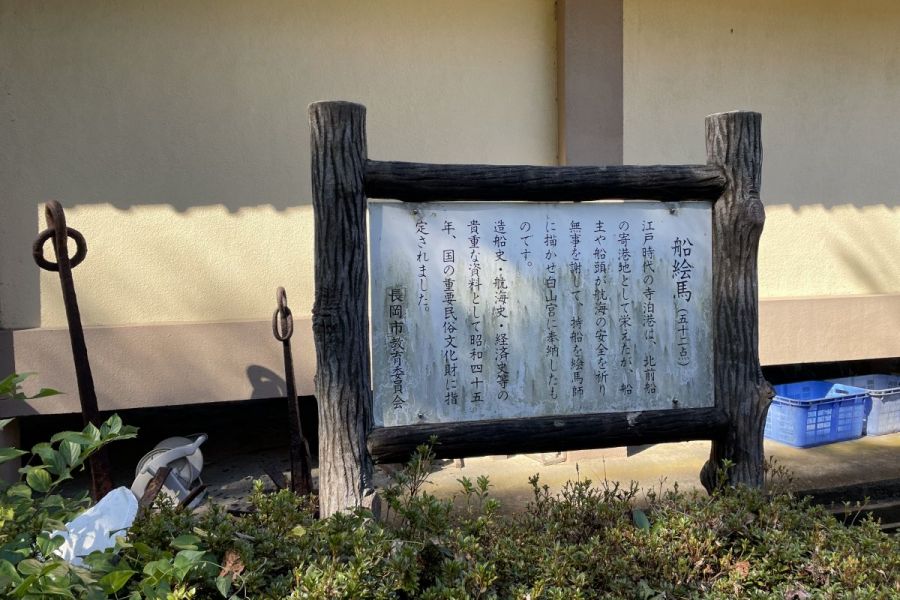 船絵馬(五十二点)
江戸時代の寺泊港は、北前船
の寄港地として栄えたが、船
主や船頭が航海の安全を祈り
無事を謝して、持船を絵馬師
に描かせ白山宮に奉納したも
のです。
造船史・航海史・経済史等の
貴重な資料として昭和四十五
年、国の重要民俗文化財に指
定されました。
長岡市教育委員会